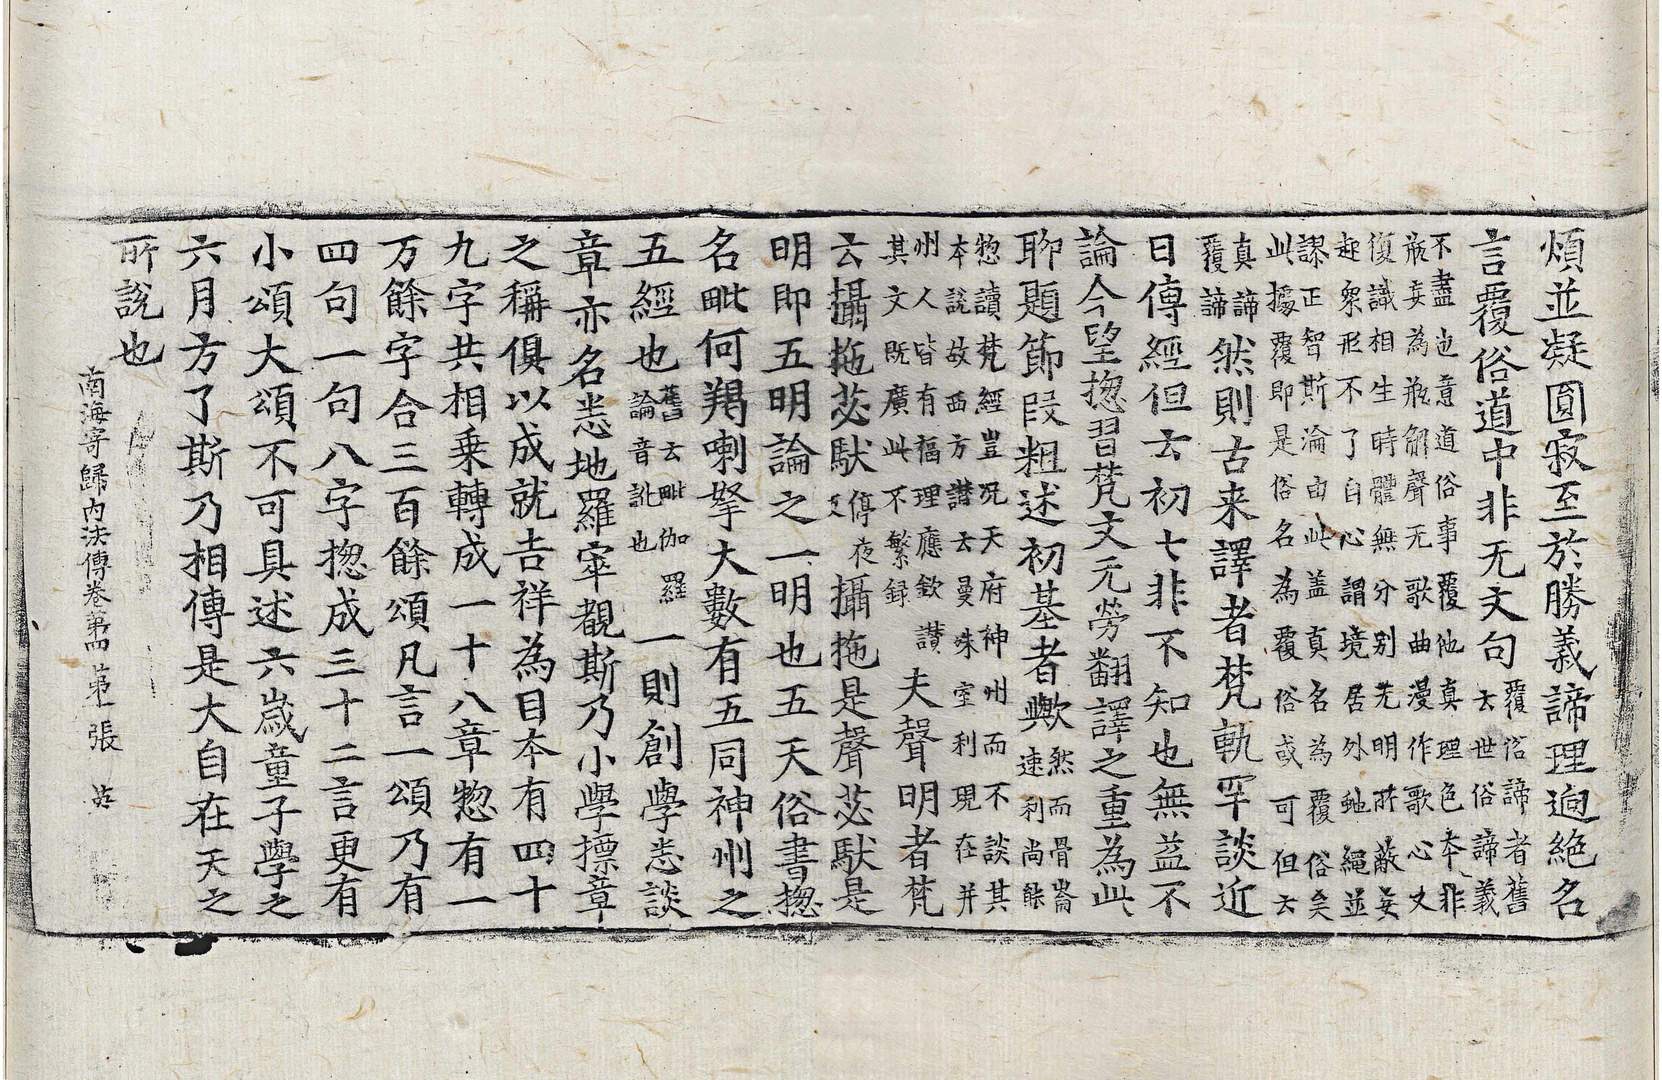 煩並凝圓寂至於勝義諦理逈絶名
言覆俗道中非无文句覆俗諦者舊云世俗諦義
不盡也意道俗事覆他真理色本非
瓶妄為瓶解聲无歌曲漫作歌心又
復識相生時體無分別无明所蔽妄
起衆形不了自心謂境居外虵繩並
謬正智斯淪由此盖真名為覆俗矣
此據覆即是俗名為覆俗或可但云
真諦覆諦然則古来譯者梵軌罕談近
日傳經但云初七非不知也無益不
論今望揔習梵文无勞翻譯之重為此
聊題節叚粗述初基者歟然而骨崙速利尚能
惣讀梵經豈況天府神州而不談其
本說故西方讃云曼殊室利現在并
州人皆有福理應欽讃其文既廣此不繁録夫聲明者梵
云攝拖苾馱停夜反攝拖是聲苾馱是
明即五明論之一明也五天俗書揔
名毗何羯喇拏大數有五同神州之
五經也舊云毗伽羅論音訛也一則創學悉談
章亦名悉地羅窣覩斯乃小學摽章
之稱俱以成就吉祥為目本有四十
九字共相乗轉成一十八章惣有一
万餘字合三百餘頌凡言一頌乃有
四句一句八字揔成三十二言更有
小頌大頌不可具述六歲童子學之
六月方了斯乃相傳是大自在天之
所說也
南海寄歸内法傳卷第四 第一張 英